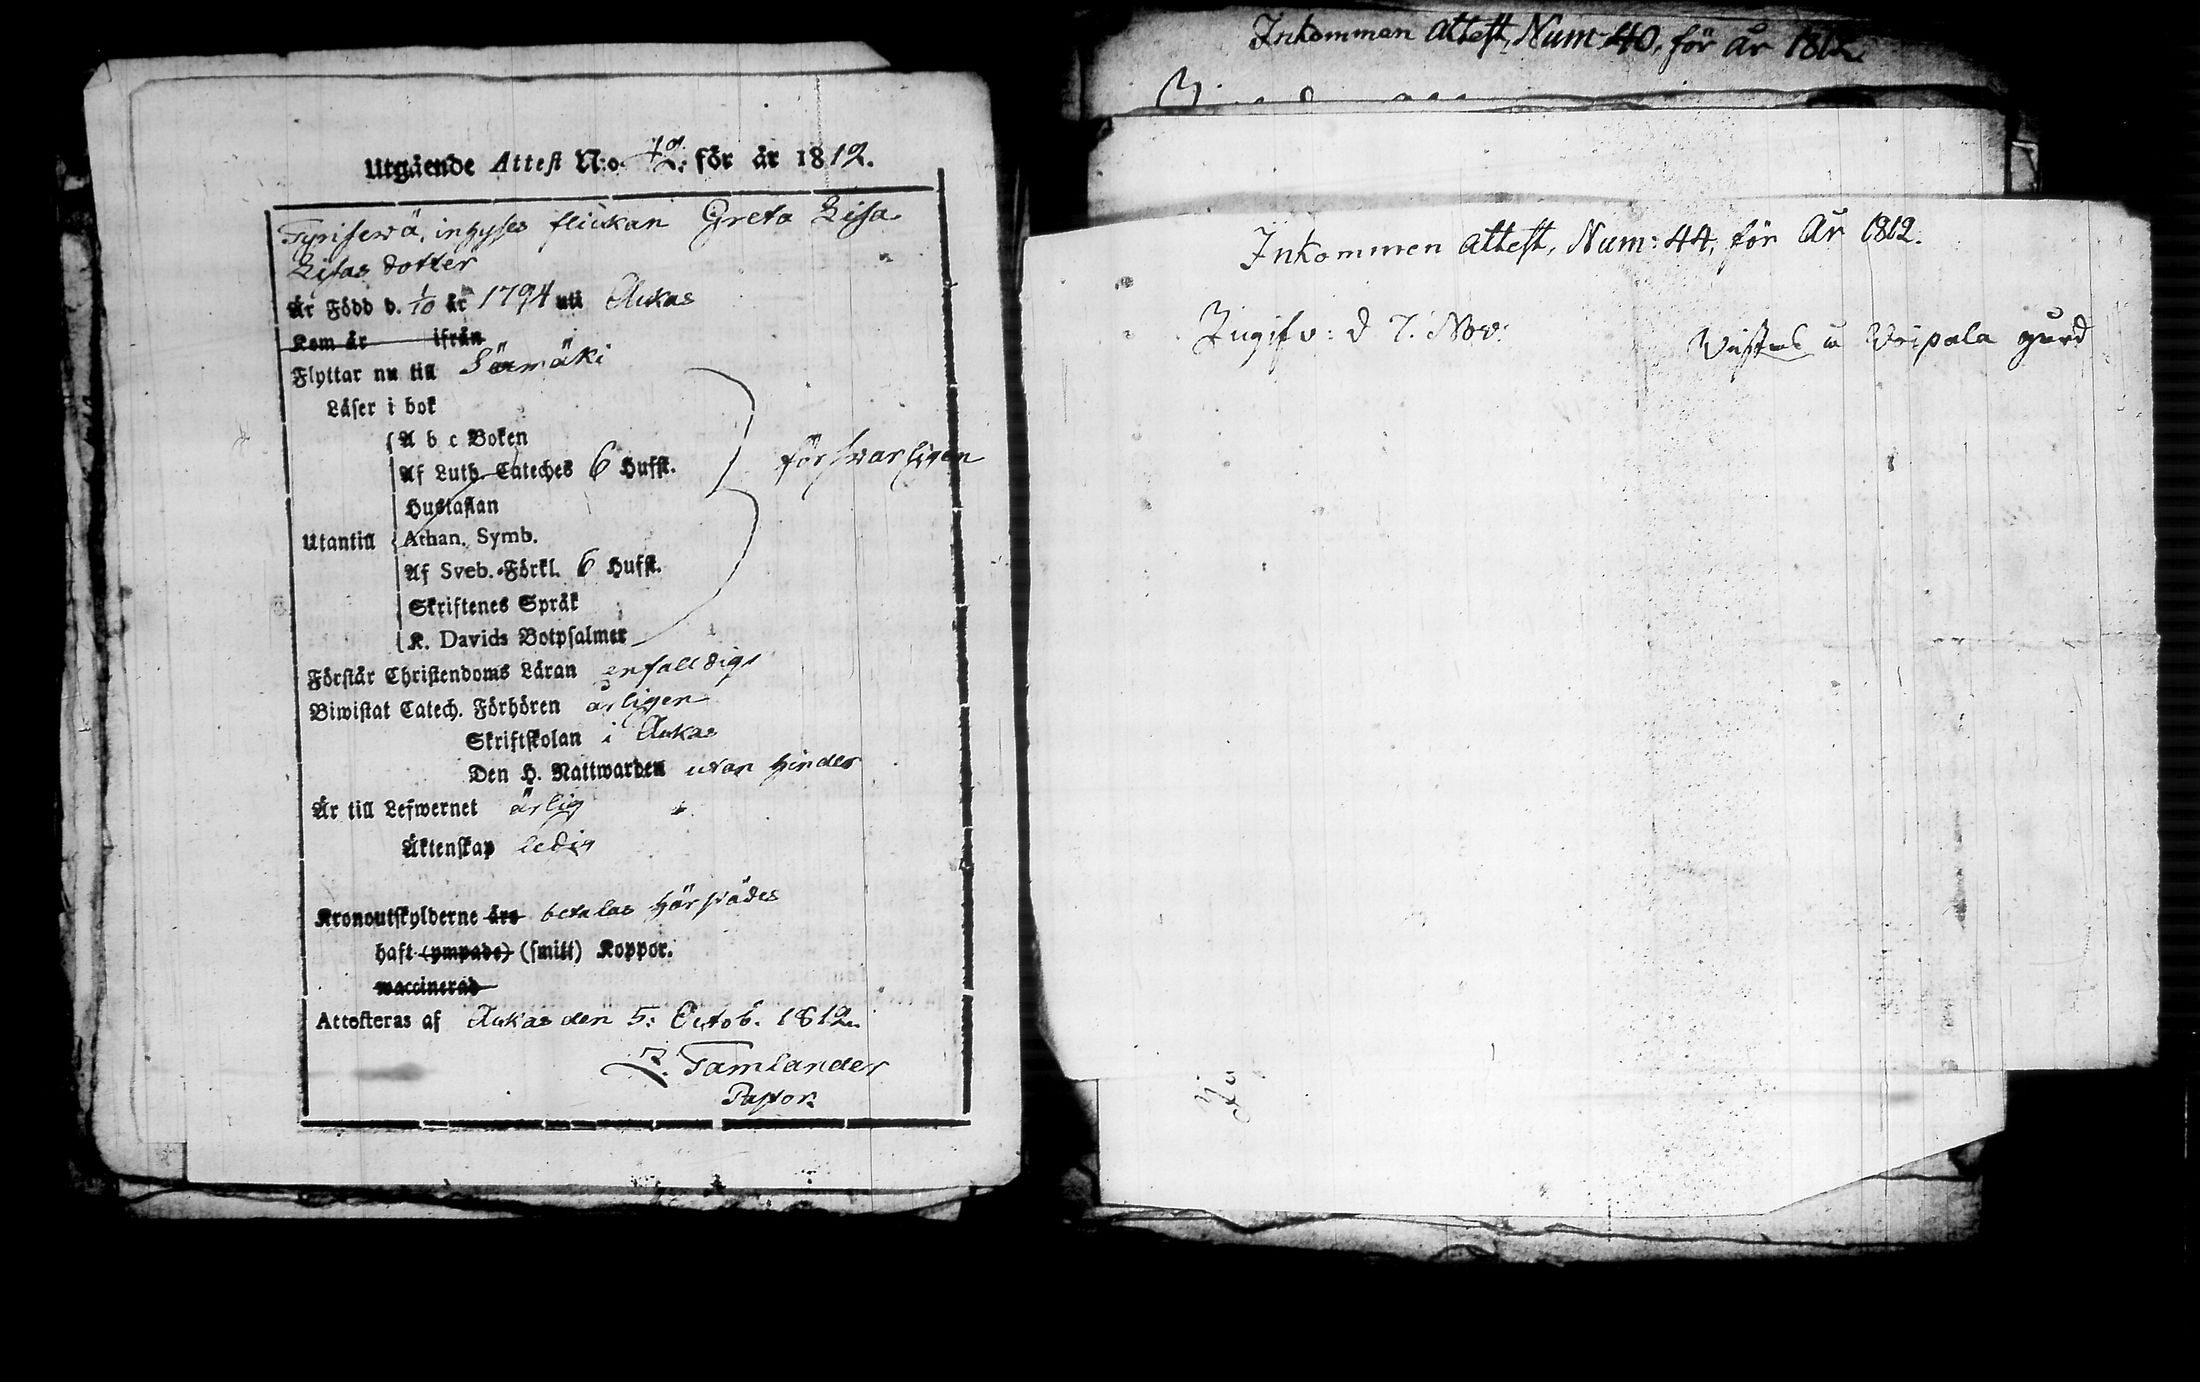 Utgående Attest N:o 42. för år 1812.
Tyrisewä, inhyses flickan Greta Lisa
Lisas dotter
Är Född d. 1/10 år 1794 uti Aukas
Kom år ifrån
Flyttar nu till Särmäki
Läser i bok
A b c Boken
Af Luth. Cateches 6 Hufst.
försvarligen
Hustaflan
Utantill
Athan. Symb.
Af Sveb. Förkl. 6 Hufst.
Skriftenes Språk
K. Davids Botpsalmer
Förstår Christendoms Läran enfalldigt
Biwistat Catech. Förhören årligen
Skriftskolan i Aukas
Den H. Nattwarden utan hinder
Är till Lefwernet ärlig
Äktenskap ledig
Kronoutskylderne äro betalas härstädes
haft (ympade) (smitt) Koppor.
waccinerad
Attesteras af Aukas den 5: Octob. 1812.
Z. Tamlander
Pastor.
Inkommen attest, Num 40, för år 1812
Inkommen attest, Num: 44, för År 1812.
d 7. Nov:
Weipala gård